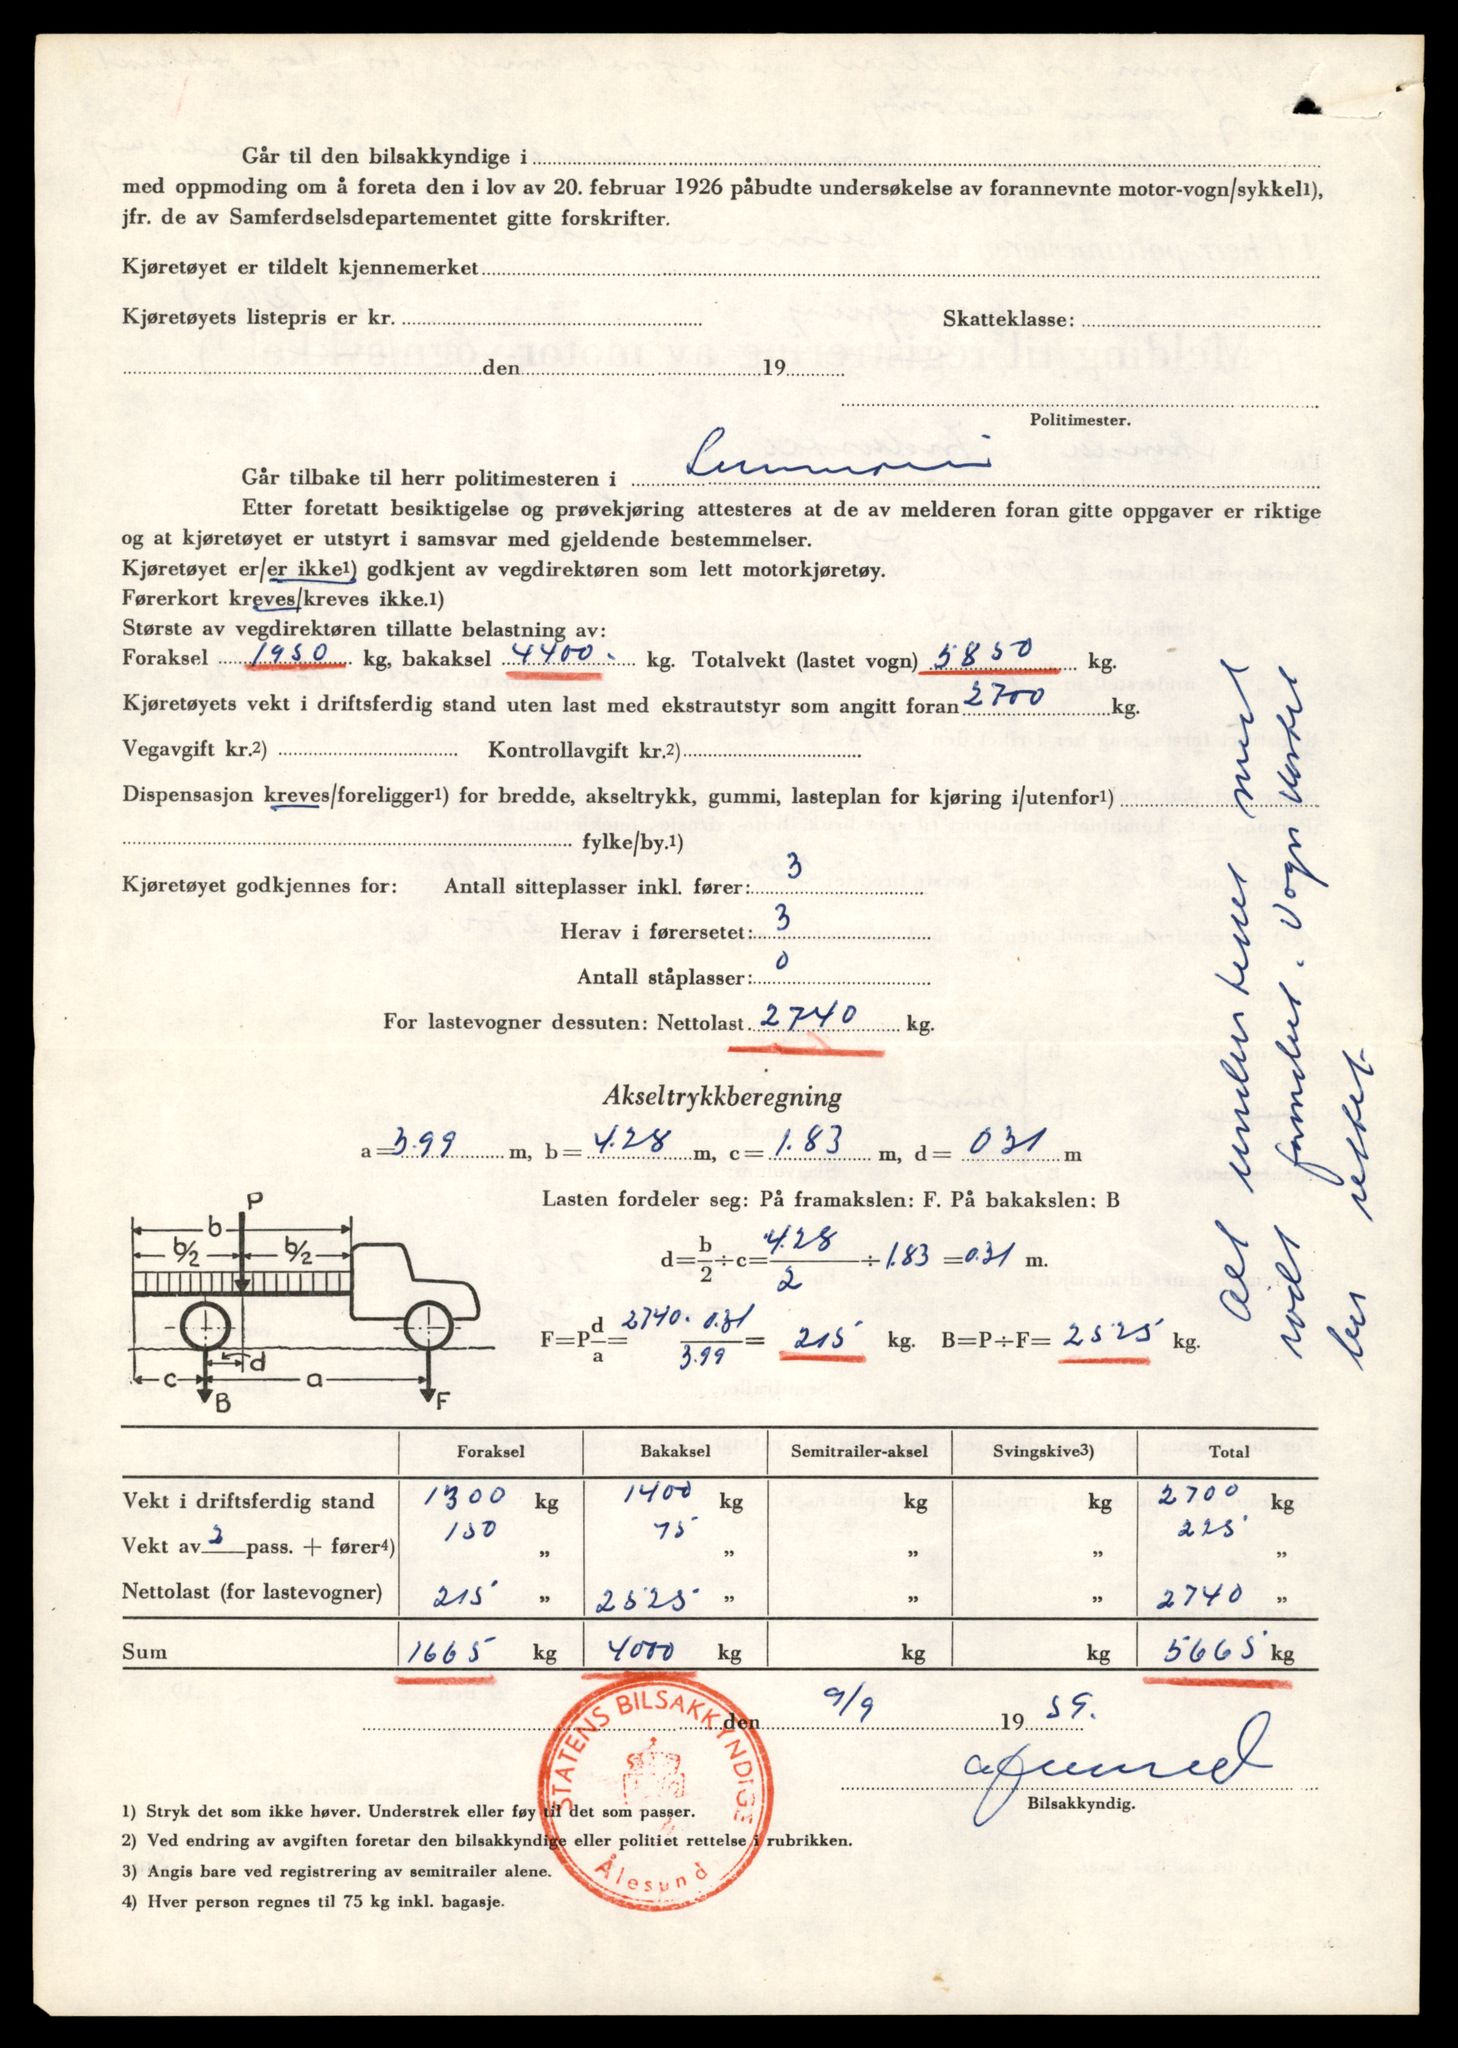 Går til den bilsakkyndige i
med oppmoding om å foreta den i lov av 20. februar 1926 påbudte undersøkelse av forannevnte motor-vogn/sykkel1),
jfr. de av Samferdselsdepartementet gitte forskrifter.
Kjøretøyet er tildelt kjennemerket
Kjøretøyets listepris er kr. Skatteklasse:
den 19
Politimester.
Går tilbake til herr politimesteren i
Etter foretatt besiktigelse og prøvekjøring attesteres at de av melderen foran gitte oppgaver er riktige
og at kjøretøyet er utstyrt i samsvar med gjeldende bestemmelser.
Kjøretøyet er/er ikke1) godkjent av vegdirektøren som lett motorkjøretøy.
Førerkort kreves/kreves ikke.1)
Største av vegdirektøren tillatte belastning av:
Foraksel 1950 kg, bakaksel 4400 kg. Totalvekt (lastet vogn) 5850 kg.
Kjøretøyets vekt i driftsferdig stand uten last med ekstrautstyr som angitt foran 2700 kg.
Vegavgift kr.2) Kontrollavgift kr.2)
Dispensasjon kreves/foreligger1) for bredde, akseltrykk, gummi, lasteplan for kjøring i/utenfor1)
fylke/by.1)
Kjøretøyet godkjennes for: Antall sitteplasser inkl. fører: 3
Herav i førersetet: 3
Antall ståplasser: 0
For lastevogner dessuten: Nettolast 2740 kg.
Akseltrykkberegning
a= 3.99 m, b= 4.28 m, c= 1.83 m, d= 031 m
Lasten fordeler seg: På framakslen: F. På bakakslen: B
d=b/2÷c= 4.28/2 ÷ 1.83 = 0.31 m.
F=P d/a= 2740. 0.31/3.99 = 215 kg. B=P÷F= 2525 kg.
P
b
b/2 b/2
d
c a
B F
Foraksel Bakaksel Semitrailer-aksel Svingskive3) Total
Vekt i driftsferdig stand 1300 kg 1400 kg kg kg 2700 kg
Vekt av 2 pass. + fører4) 150 „ 75 „ „ „ 225 „
Nettolast (for lastevogner) 215 „ 2525 „ „ „ 2740 „
Sum 1665 kg 4000 kg kg kg 5665 kg
den 9/9 19 59.
Bilsakkyndig.
STATENS BILSAKKYNDIGE
Ålesund
1) Stryk det som ikke høver. Understrek eller føy til det som passer.
2) Ved endring av avgiften foretar den bilsakkyndige eller politiet rettelse i rubrikken.
3) Angis bare ved registrering av semitrailer alene.
4) Hver person regnes til 75 kg inkl. bagasje.
Alt understreket med
rødt forandret. Vognkortet
bes rettet